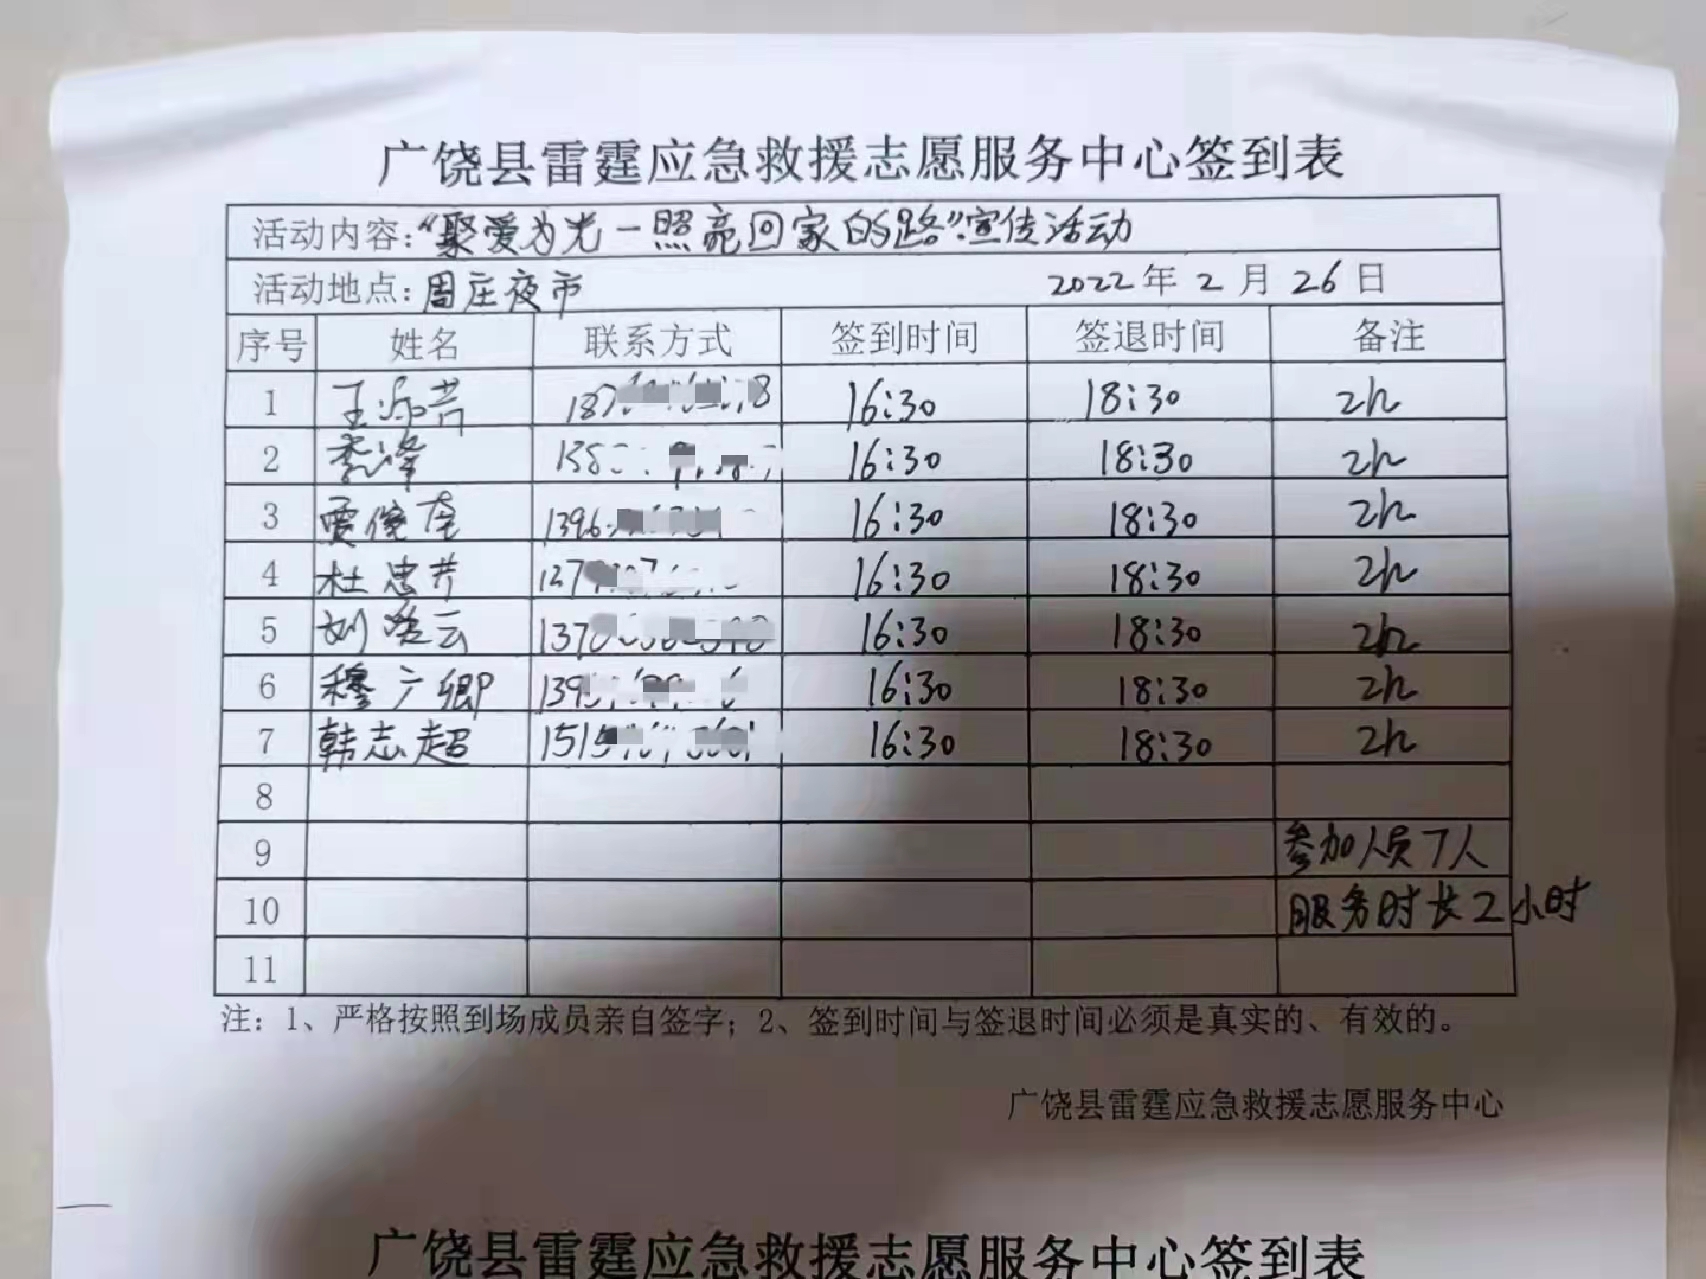 广饶县雷霆应急救援志愿服务中心签到表
活动内容：“聚爱为光一照亮回家的路”宣传活动
活动地点：周庄夜市 2022年2月26日
序号 姓名 联系方式 签到时间 签退时间 备注
1 16:30 18:30 2h
2 16:30 18:30 2h
3 16:30 18:30 2h
4 杜忠芹 16:30 18:30 2h
5 16:30 18:30 2h
6 穆广卿 16:30 18:30 2h
7 韩志超 16:30 18:30 2h
8
9 参加人员7人
10 服务时长2小时
11
注：1、严格按照到场成员亲自签字；2、签到时间与签退时间必须是真实的、有效的。
广饶县雷霆应急救援志愿服务中心
广饶县雷霆应急救援志愿服务中心签到表